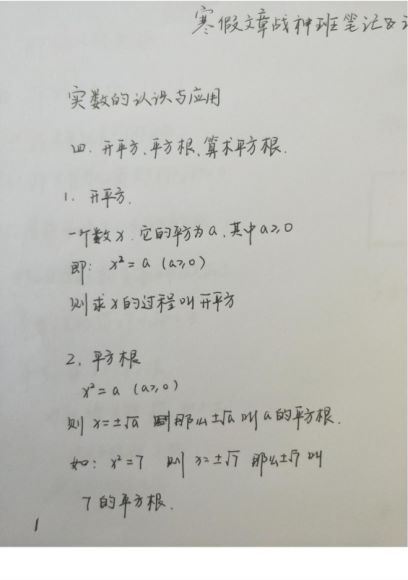 寒假文章战神班笔记&
实数的认识与应用
四. 开平方、平方根、算术平方根.
1. 开平方.
一个数x. 它的平方为a. 其中a≥0
即: x²=a (a≥0)
则求x的过程叫开平方
2. 平方根
x²=a (a≥0)
则 x=±√a 那么±√a叫a的平方根.
如: x²=7 则 x=±√7 那么±√7叫
7的平方根.
1